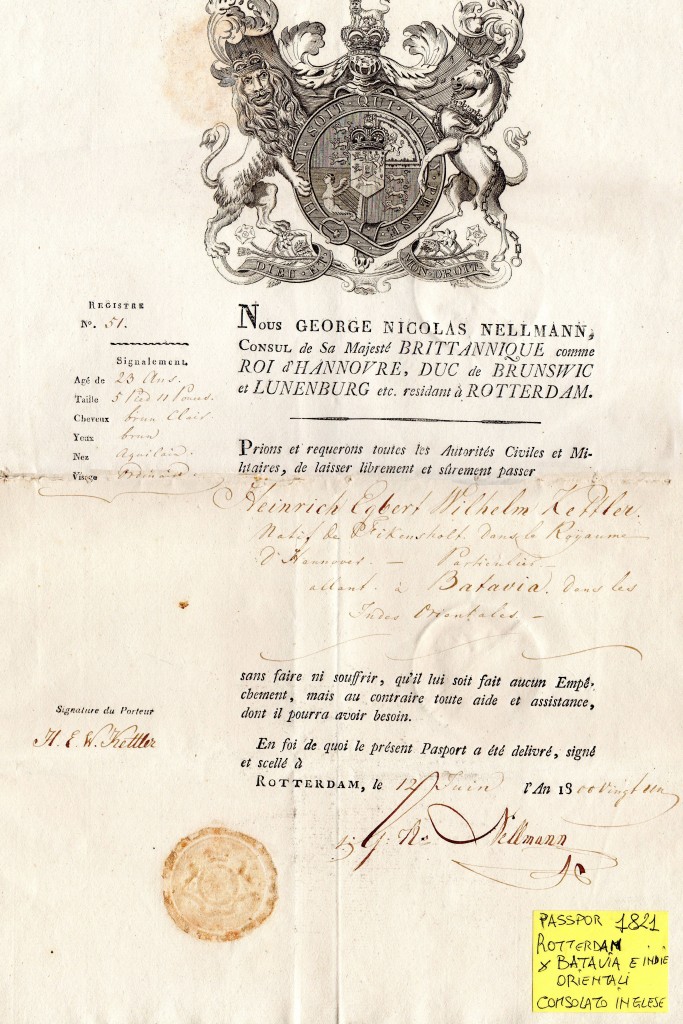 HONI SOIT QUI MAL Y PENSE
DIEU ET MON DROIT
REGISTRE
No. 51.
Signalement.
Agé de 23 Ans.
Taille 5 Pied 11 Pouces
Cheveux brun Clair
Yeux brun
Nez Aquilain.
Visage Ordinaire
Nous GEORGE NICOLAS NELLMANN,
CONSUL de Sa Majesté BRITTANNIQUE comme
ROI d'HANNOVRE, DUC de BRUNSWIC
et LUNENBURG etc. residant à ROTTERDAM.
Prions et requerons toutes les Autorités Civiles et Mi-
litaires, de laisser librement et sûrement passer
Heinrich Egbert Wilhelm Kettler.
Natif de Fikensholt. dans le Royaume
D'Hannover. — Particulier —
allant à Batavia. dans les
Indes Orientales —
sans faire ni souffrir, qu'il lui soit fait aucun Empê-
chement, mais au contraire toute aide et assistance,
dont il pourra avoir besoin.
Signature du Porteur
H. E. W. Kettler
En foi de quoi le présent Pasport a été delivré, signé
et scellé à
ROTTERDAM, le 12 Juin l'An 1800 vingt un
G. N. Nellmann
PASSPOR 1821
ROTTERDAM ..
x BATAVIA E INDIE
ORIENTALI
CONSOLATO INGLESE